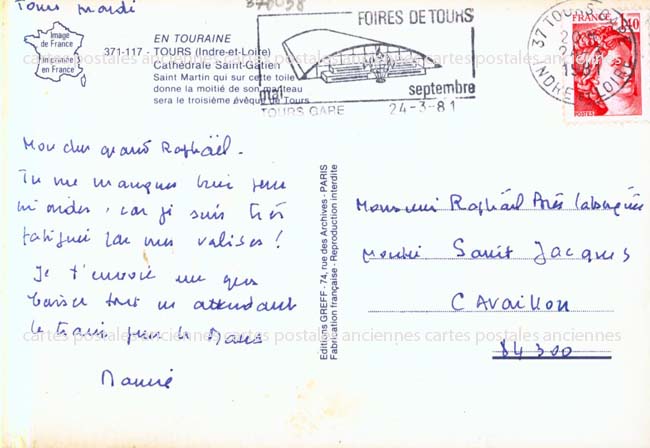 Tours mardi
370038
Image
de France
Imprimée
en France
EN TOURAINE
371-117 - TOURS (Indre-et-Loire)
Cathédrale Saint-Gatien
Saint Martin qui sur cette toile
donne la moitié de son manteau
sera le troisième évêque de Tours
FOIRES DE TOURS
mai
septembre
TOURS GARE 24-3-81
37 TOURS GARE
INDRE-ET-LOIRE
1,40
POSTES
Mon cher grand Raphaël.
Tu me manques pour
m'aider, car je suis très
fatiguée par mes valises !
Je t'envoie un gros
baiser tout en attendant
le train pour le Mans
Mamie
Editions GREFF - 74, rue des Archives - PARIS
Fabrication française - Reproduction interdite
Monsieur Raphaël
Montée Saint Jacques
CAVAILLON
84300
cartes postales anciennes cartes postales anciennes cartes postales anciennes
cartes postales anciennes cartes postales anciennes cartes postales anciennes